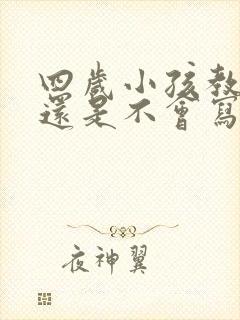 四歲小孩教
還是不會寫
夜神翼